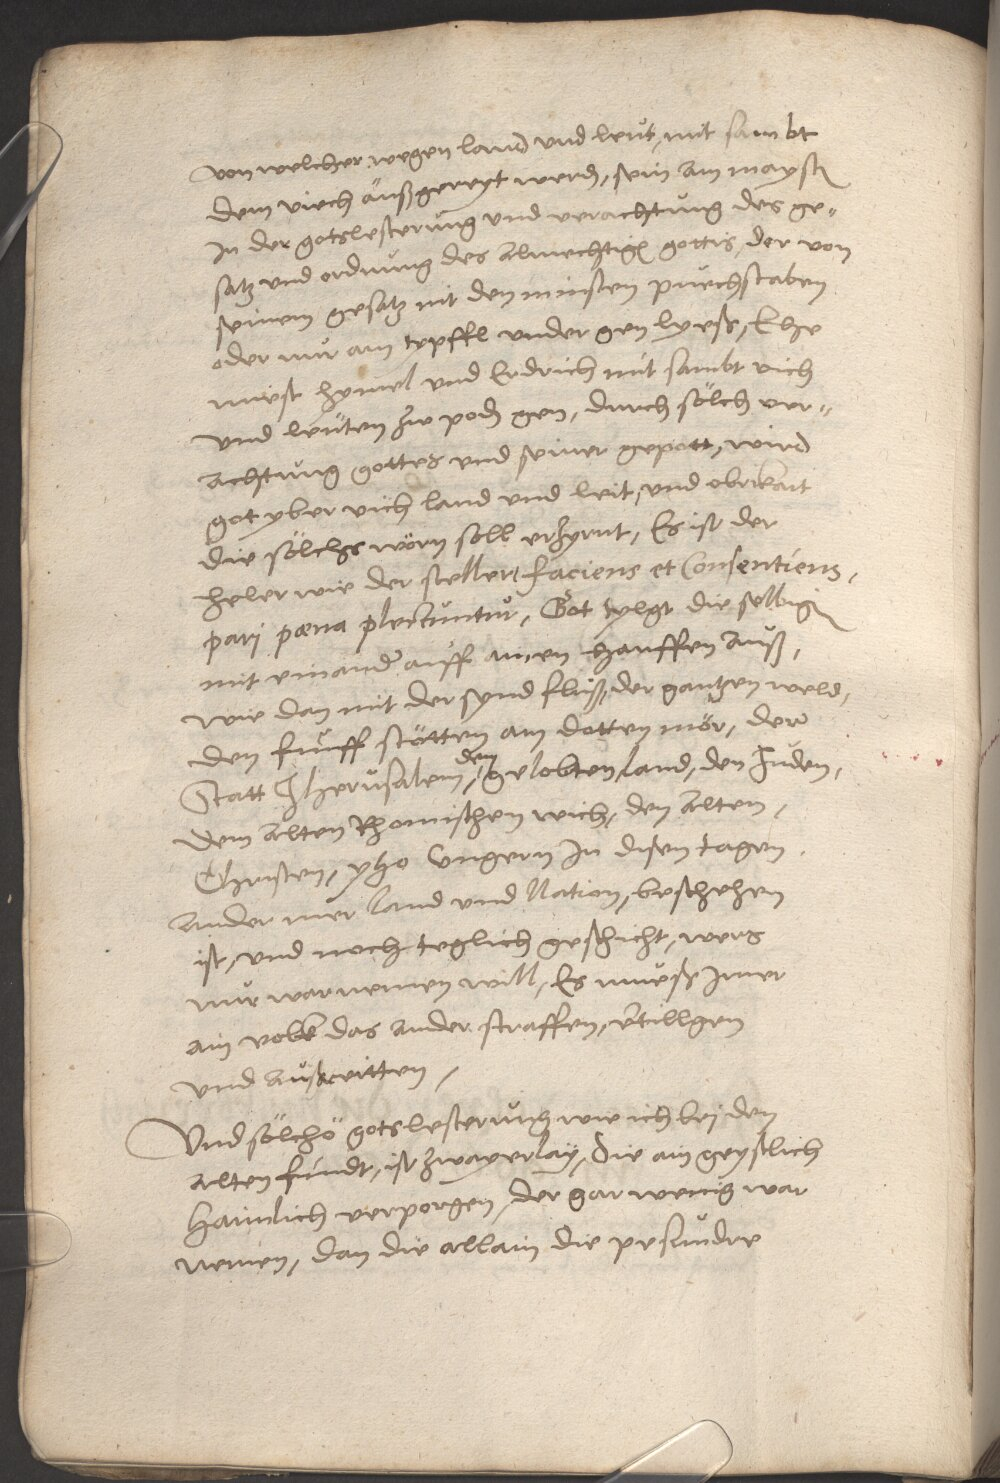 von welcher wegen land vnd leut, mit sambt
dem viech außgereyt werd, sein am mayst
In der gotslesterung vnd verachtung des ge-
satz vnd ordnung des Almechtig gottis, der von
seinem gesatz nit den minsten puechstaben
oder nur ain typffl vnder gen lyesß, Ehe
muest hymel vnd Erdrich mit sambt vich
vnd leuten zw pod gen, durch sölch ver-
achtung gottes vnd seiner gepott, wird
got yber vich land vnd leit, vnd obrikait
die sölchs wörn soll erzyrnt, Es ist der
heler wie der steller / faciens et Consentiens,
pari pœna plectuntur, Got tylgt die selbig
mit einander auff ainen hauffen auß,
wie dan mit der synd fluß, der gantzen weld,
den funff stötten am dotten mör, der
Statt Jherusalem, dem gelobten land, den Juden,
dem alten Rhomischen reich, den alten
Christen, yzo Vngern In disen tagen
ander mer land vnd Nation, beschehen
ist, vnd noch teglich geschicht, wers
nur warnemen will, Es muesß Jmer
ain volk das ander straffen, vertillgen
vnd außreitten,
Vnd sölche gotslesterung wie ich bej den
alten findt, ist zwayerlay, Die ain geystlich
haimlich verporgen, der gar wenig war
nemen, dan die allain die pesunder